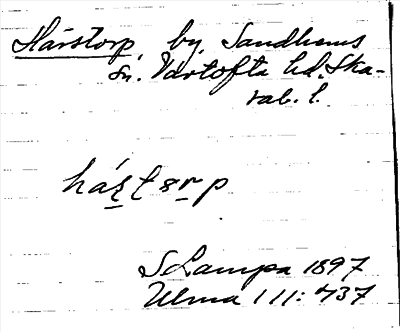 Härstorp, by, Sandhems
sn. Vartofta hd. Ska-
rab. l.
S Lampa 1897
Ulma 111:437